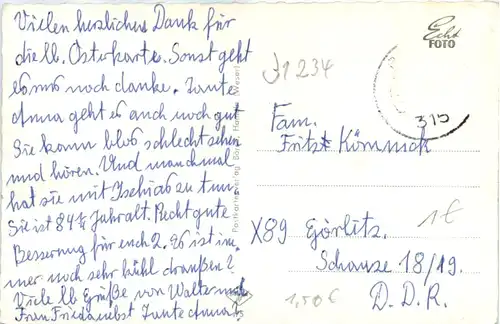 Vielen herzlichen Dank für
die lb. Osterkarte. Sonst geht
es uns noch danke. Tante
Anna geht es auch noch gut
Sie kann blos schlecht sehen
und hören. Und manchmal
hat sie mit Ischias zu tun
Sie ist 84 ¼ Jahr alt. Recht gute
Besserung für euch 2. Es ist im-
mer noch sehr kühl draußen?
Viele lb Grüße von Walter und
Frau Frieda nebst Tante Anna
Echt
FOTO
J1234
315
Fam.
Fritz Kömmck
X89 Görlitz.
Schanze 18/19.
D. D. R.
1€
1,50€